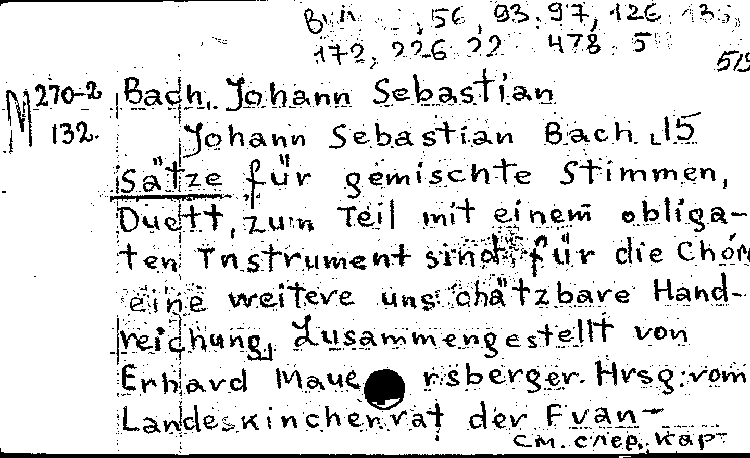 56, 93, 97, 126, 135,
172, 226 22 478 5
519
M 270-2
132.
Bach, Johann Sebastian
Johann Sebastian Bach. 15
Sätze für gemischte Stimmen,
Duett, zum Teil mit einem obliga-
ten Instrument sind für die Chöre
eine weitere unschätzbare Hand-
reichung. Zusammengestellt von
Erhard Mauersberger. Hrsg. vom
Landeskirchenrat der Evan-
см. след. карт